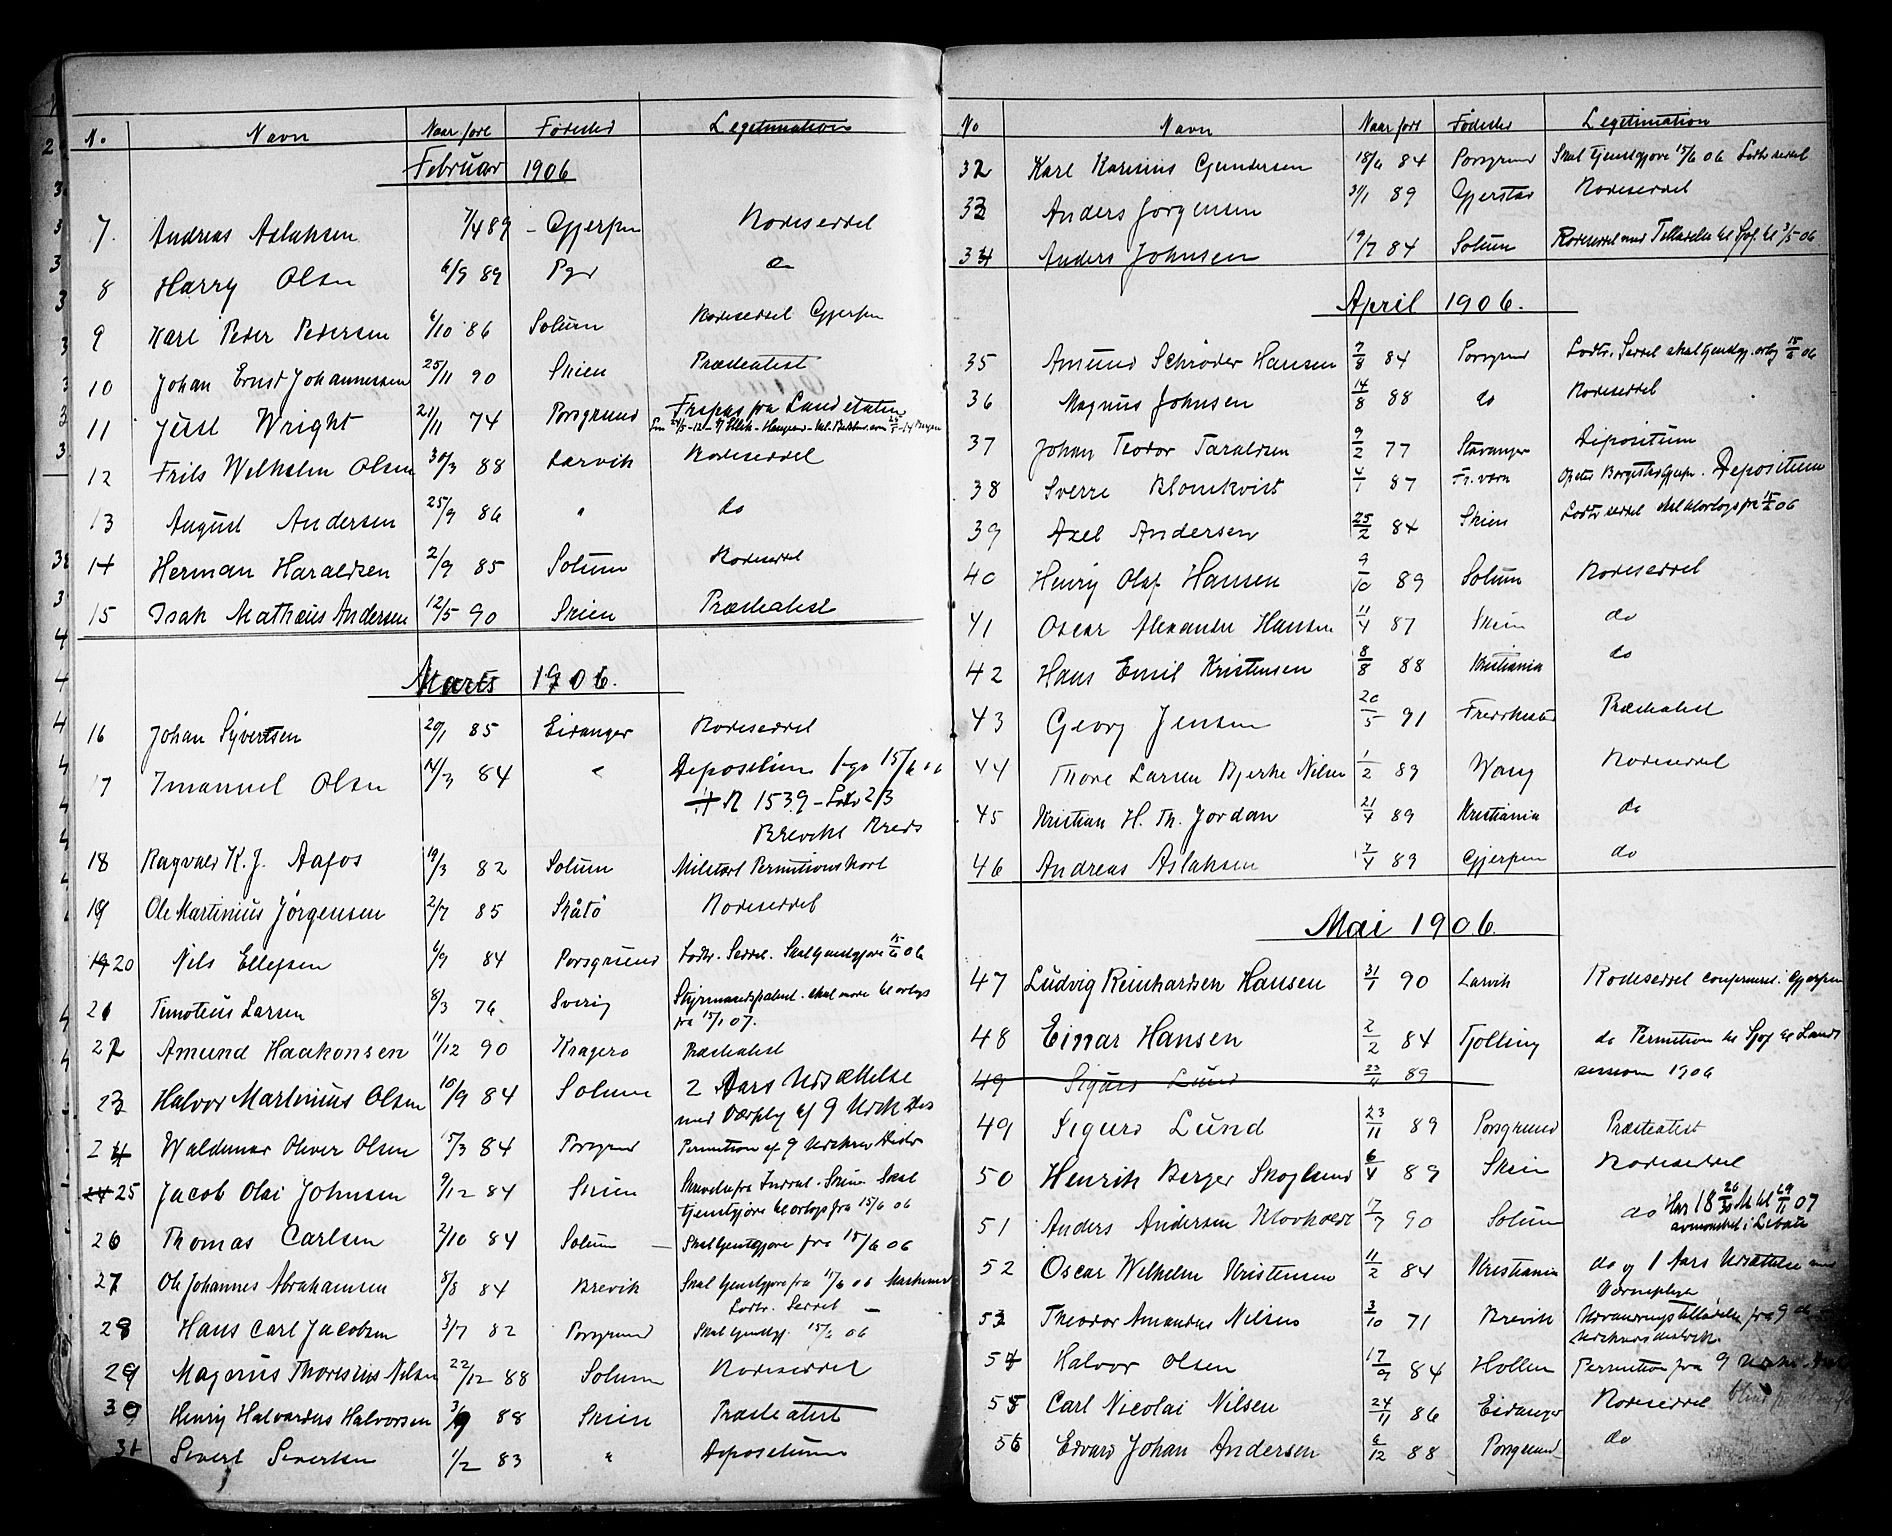 No. Navn Naar født Fødested Legitimation
Februar 1906
7. Andreas Aslaksen 7/4 89 - Gjerpen Rodeseddel
8 Harry Olsen 6/9 89 Pgr do
9 Karl Peder Pedersen 6/10 86 Solum Rodeseddel Gjerpen
10 Johan Ernst Johannessen 25/11 90 Skien Præsteatest
11 Just Wright 21/11 74 Porsgrund Fripas fra Landetaten
12 Frits Wilhelm Olsen 30/3 88 Larvik Rodeseddel
13 August Andersen 25/9 86 " do
14 Herman Haraldsen 2/9 85 Solum Rodeseddel
15 Isak Mathæus Andersen 12/5 90 Skien Præsteatest
Marts 1906.
16 Johan Syvertsen 20/1 85 Eidanger Rodeseddel
17 Imanuel Olsen 14/3 84 " Depositum 15/6 06
N 1539 - Lodtr 2/3
Brevik Kreds
18 Ragvald K. J. Aafos 19/3 82 Solum Militært Permitionskort
19 Ole Martinius Jørgensen 2/7 85 Skåtö Rodeseddel
19 20 Nils Ellefsen 6/9 84 Porsgrund Lodtr. Seddel. Skal tjenstgjøre 15/6 06
21 Timoteus Larsen 8/3 76 Sverig Styrmandspatent. skal møde til orlogs
fra 15/1 07.
22 Amund Haakonsen 11/12 90 Kragerø Præsteatest
23 Halvor Martinius Olsen 10/9 84 Solum 2 Aars Udsættelse
med Værnpl. af 9 Udsk Dis
24 Waldemar Oliver Olsen 15/3 84 Porsgrund Permition af 9 Udskrvn Distr
24 25 Jacob Olai Johnsen 9/12 84 Skien Skrivelse fra Indrul. Skien Skal
tjenstgjøre til orlogs fra 15/6 06
26 Thomas Carlsen 2/10 84 Solum — Skal tjenstgjøre fra 15/6 06
27 Ole Johannes Abrahamsen 8/8 84 Brevik Skal tjenstgjøre fra 15/6 06
Lodtr. Seddel —
28 Hans Carl Jacobsen 3/7 82 Porsgrund Skal tjenstgj. 15/6 06
29 Magnus Thoresius Nilsen 22/12 88 Solum Rodeseddel
30 Henrij Halvardus Halvorsen 3/9 88 Skien Præsteatest
31 Sivert Sivertsen 1/2 83 " Depositum
No Navn Naar født Fødested Legitimation
32 Karl Karinius Gundersen 18/6 84 Porsgrund Skal tjenstgjøre 15/6 06 Lodtr seddel
33 Anders Jørgensen 31/1 89 Gjerstad Rodeseddel
34 Anders Johnsen 19/7 84 Solum Rodeseddel med Tilladelse til Sjøf. til 3/5 06
April 1906.
35 Amund Schrøder Hansen 7/8 84 Porsgrund Lodtr. Seddel skal tjenstgj. orlog 15/6 06
36 Magnus Johnsen 14/8 88 do Rodeseddel
37 Johan Teodor Taraldsen 9/2 77 Stavanger Depositum
38 Sverre Blomkvist 4/1 87 Fr. værn Depositum
39 Axel Andersen 25/2 84 Skien Lodtr seddel skal til orlogs fra 15/6 06
40 Henrij Olaf Hansen 9/10 89 Solum Rodeseddel
41 Oscar Alexander Hansen 11/4 87 Skien do
42 Hans Emil Kristensen 8/8 88 Kristiania do
43 Georg Jensen 20/5 91 Fredrikstad Præsteatest
44 Thore Larsen Bjerke Nilsen 1/2 89 Wang Rodeseddel
45 Kristian H. Th. Jordan 21/4 89 Kristiania do
46 Andreas Aslaksen 7/4 89 Gjerpen do
Mai 1906.
47 Ludvig Reinhardsen Hansen 31/1 90 Larvik Rodeseddel confermert. Gjerpen
48 Einar Hansen 2/2 84 Tjølling do Permition til Sjøf til Lands
session 1906
49 Sigurd Lund 23/11 89
49 Sigurd Lund 23/11 89 Porsgrund Præsteatest
50 Henrik Berger Skoglund 6/4 89 Skien Rodeseddel
51 Anders Andersen Klovholdt 17/7 90 Solum do
52 Oscar Wilhelm Kristensen 11/2 84 Kristiania do og 1 Aars Udsættelse med
Værnepligt
53 Theodor Amandus Nilsen 3/10 71 Brevik Udvandringstilladelse fra 9 de
Udskrivdistrikt.
54 Halvor Olsen 17/9 84 Hollen Permition fra 9
55 Carl Nicolai Nilsen 24/11 86 Eidanger Rodeseddel
56 Edvard Johan Andersen 6/12 88 Porsgrund do